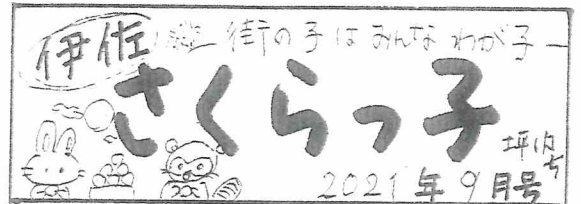 伊佐 街の子はみんなわが子ー
さくらっ子
坪内
2021年9月号